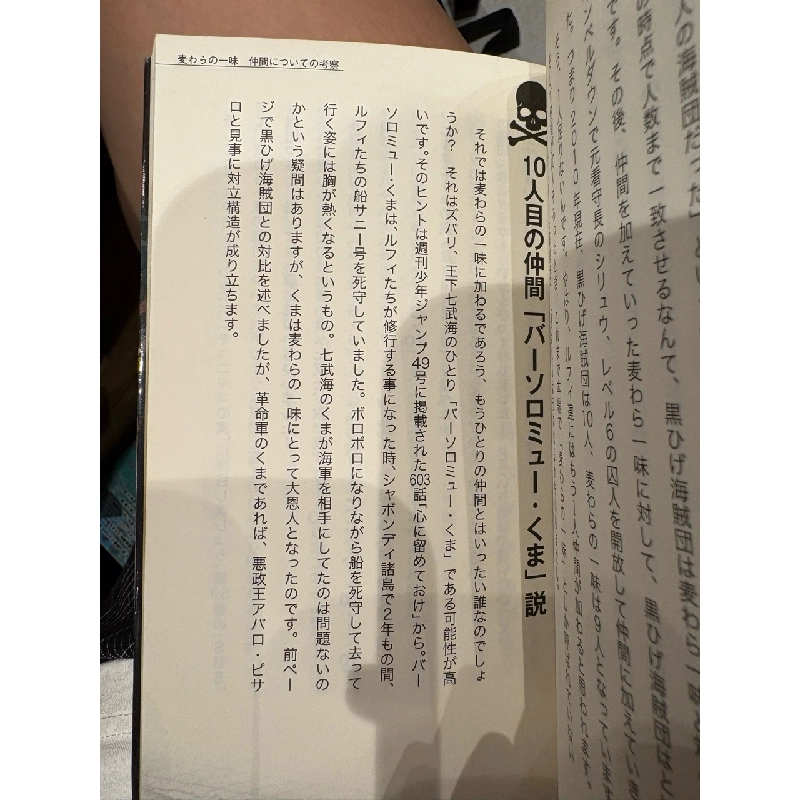 人の海賊団だった」とい
の時点で人数まで一致させるなんて、黒ひげ海賊団はと
です。その後、仲間を加えていった麦わら一味に対して、黒ひげ海賊団は
ンペルダウンで元看守長のシリュウ、レベル6の囚人を開放して仲間に加えていま
た。つまり2010年現在、黒ひげ海賊団は10人、麦わらの一味は9人となっています
麦わらの一味 仲間についての考察
10人目の仲間「バーソロミュー・くま」説
それでは麦わらの一味に加わるであろう、もうひとりの仲間とはいったい誰なのでしょ
うか? それはズバリ、王下七武海のひとり「バーソロミュー・くま」である可能性が高
いです。そのヒントは週刊少年ジャンプ49号に掲載された603話「心に留めておけ」から。バー
ソロミュー・くまは、ルフィたちが修行する事になった時、シャボンディ諸島で2年もの間、
ルフィたちの船サニー号を死守していました。ボロボロになりながら船を死守して去って
行く姿には胸が熱くなるというもの。七武海のくまが海軍を相手にしてたのは問題ないの
かという疑問はありますが、くまは麦わらの一味にとって大恩人となったのです。前ペー
ジで黒ひげ海賊団との対比を述べましたが、革命軍のくまであれば、悪政王アバロ・ピサ
ロと見事に対立構造が成り立ちます。